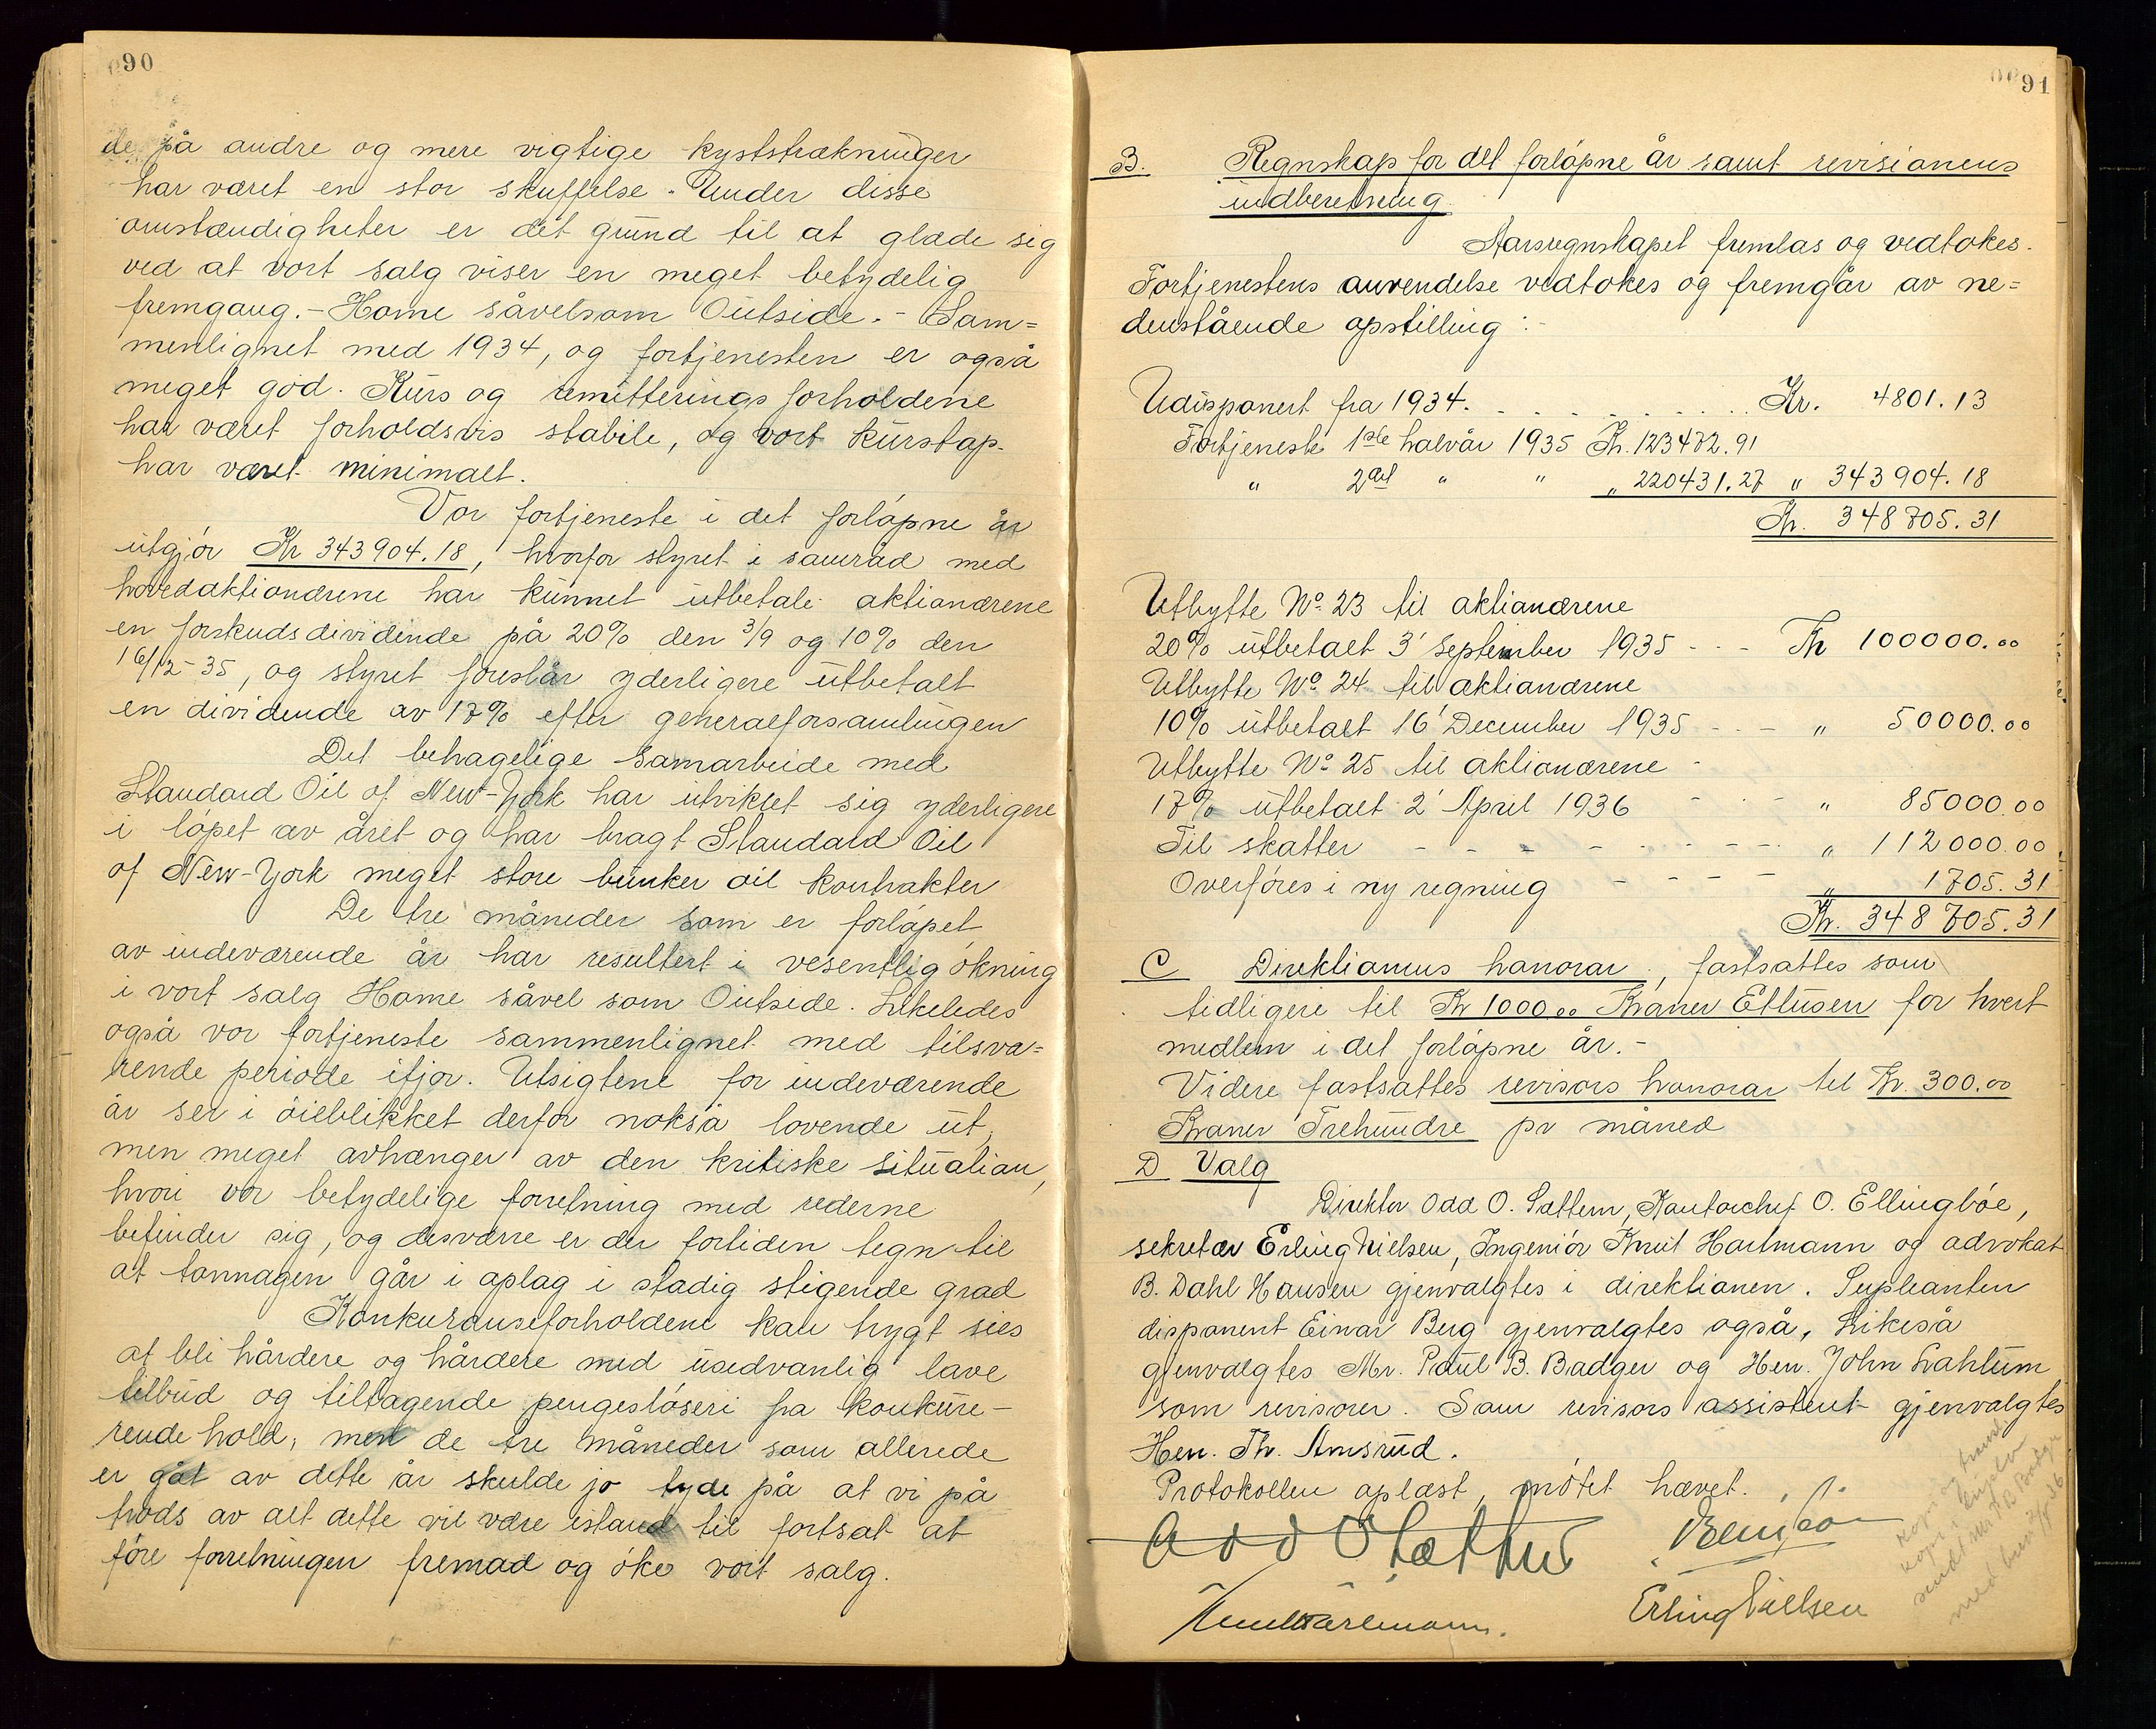 90
de på andre og mere vigtige kyststrækninger
har været en stor skuffelse. Under disse
omstændigheter er det grund til at glæde sig
ved at vort salg viser en meget betydelig
fremgang. - Home såvelsom Outside. - Sam=
menlignet med 1934, og fortjenesten er også
meget god. Kurs og remitteringsforholdene
har været forholdsvis stabile, og vort kurstap
har været minimalt.
Vor fortjeneste i det forløpne år
utgjør Kr 343904.18, hvorfor styret i samråd med
hovedaktionærene har kunnet utbetale aktionærene
en forskudsdividende på 20% den 3/9 og 10% den
16/12-35, og styret foreslår yderligere utbetalt
en dividende av 17% efter generalforsamlingen
Det behagelige samarbeide med
Standard Oil of New-York har utviklet sig yderligere
i løpet av året og har bragt Standard Oil
of New-York meget store bunker oil kontrakter
De tre måneder som er forløpet
av indeværende år har resultert i vesentlig økning
i vort salg Home såvel som Outside. Likeledes
også vor fortjeneste sammenlignet med tilsva=
rende periode ifjor. Utsigtene for indeværende
år ser i øieblikket derfor nokså lovende ut,
men meget avhænger av den kritiske situation,
hvori vor betydelige forretning med rederne
befinder sig, og desværre er der fortiden tegn til
at tonnagen går i oplag i stadig stigende grad
Konkuranseforholdene kan trygt sies
at bli hårdere og hårdere med usedvanlig lave
tilbud og tiltagende pengesløseri fra konkure-
rende hold, men de tre måneder som allerede
er gåt av dette år skulde jo tyde på at vi på
trods av alt dette vil være istand til fortsat at
føre forretningen fremad og øke vort salg.
91
B. Regnskap for det forløpne år samt revisionens
indberetning
Aarsregnskapet fremlas og vedtokes.
Fortjenestens anvendelse vedtokes og fremgår av ne=
denstående opstilling :-
Udisponert fra 1934. . . . . . . . . . Kr. 4801.13
Fortjeneste 1ste halvår 1935 Kr. 123472.91
" 2det " " " 220431.27 " 343904.18
Kr. 348705.31
Utbytte No. 23 til aktionærene
20% utbetalt 3' september 1935 - - - Kr 100000.00
Utbytte No. 24 til aktionærene
10% utbetalt 16' December 1935 - - - " 50000.00
Utbytte No. 25 til aktionærene -
17% utbetalt 2' April 1936 - - - " 85000.00
Til skatter - - - - - - - - " 112000.00
Overføres i ny regning - - - - " 1705.31
Kr. 348705.31
C Direktionens honorar, fastsattes som
tidligere til Kr 1000.00 Kroner Ettusen for hvert
medlem i det forløpne år. -
Videre fastsattes revisors honorar til Kr. 300.00
Kroner Trehundre pr måned
D Valg
Direktør Odd O. Sættem, Kontorchef O. Ellingbøe,
sekretær Erling Nielsen, Ingeniør Knut Hartmann og advokat
B. Dahl Hansen gjenvalgtes i direktionen. Supleanten
disponent Einar Berg gjenvalgtes også, Likeså
gjenvalgtes Mr. Paul B. Badger og Herr. John Lahlum
som revisorer. Som revisors assistent gjenvalgtes
Herr. Th. Amsrud.
Protokollen oplæst, møtet hævet.
Odd O Sættem
Knut Hartmann.
Erling Nielsen